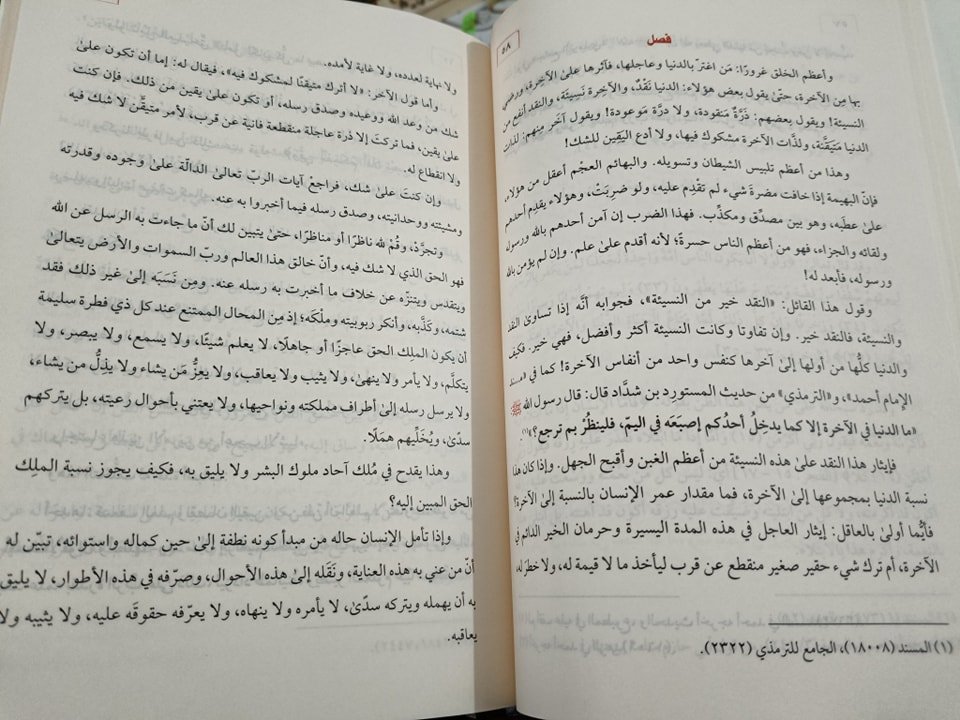 ٥٨
فصل
وأعظم الخلق غرورًا: مَن اغترّ بالدنيا وعاجلها، فآثرها علىٰ الآخرة، ورضي
بها مِن الآخرة، حتىٰ يقول بعض هؤلاء: الدنيا نَقْدٌ، والآخرة نَسِيئة، والنقد أنفع من
النسيئة! ويقول بعضهم: ذَرَّةٌ منقودة، ولا درَّة موعودة! ويقول آخر منهم: لذات
الدنيا متيقَّنة، ولذَّات الآخرة مشكوك فيها، ولا أدع اليَقِين للشك!
وهذا من أعظم تلبيس الشيطان وتسويله. والبهائم العجْم أعقل من هؤلاء،
فإنّ البهيمة إذا خافت مضرةَ شيء لم تقْدِم عليه، ولو ضرِبَتْ، وهؤلاء يقدِم أحدهم
علىٰ عطَبِه، وهو بين مصدِّق ومكذِّب. فهذا الضرب إن آمن أحدهم بالله ورسوله
ولقائه والجزاء، فهو من أعظم الناس حسرةً؛ لأنه أقدم علىٰ علم. وإن لم يؤمن بالله
ورسوله، فأبعد له!
وقول هذا القائل: «النقد خير من النسيئة»، فجوابه أنَّه إذا تساوىٰ النقد
والنسيئة، فالنقد خير. وإن تفاوتا وكانت النسيئة أكثر وأفضل، فهي خير. فكيف
والدنيا كلُّها من أولها إلىٰ آخرها كنفس واحد من أنفاس الآخرة! كما في «مسند
الإمام أحمد»، و«الترمذي» من حديث المستورِد بن شدَّاد قال: قال رسول الله ﷺ
«ما الدنيا في الآخرة إلا كما يدخلُ أحدُكم إصبَعَه في اليمّ، فلينظُرْ بم ترجع؟»(١).
فإيثار هذا النقد علىٰ هذه النسيئة من أعظم الغبن وأقبح الجهل. وإذا كان هذا
نسبة الدنيا بمجموعها إلىٰ الآخرة، فما مقدار عمر الإنسان بالنسبة إلىٰ الآخرة؟
فأيُّما أولىٰ بالعاقل: إيثار العاجل في هذه المدة اليسيرة وحرمان الخير الدائم في
الآخرة، أم ترك شيء حقير صغير منقطع عن قرب ليأخذ ما لا قيمة له، ولا خطرَ له،
(١) المسند (١٨٠٠٨)، الجامع للترمذي (٢٣٢٢).
ولا نهاية لعدده، ولا غاية لأمده.
وأما قول الآخر: «لا أترك متيقنًا لمشكوك فيه»، فيقال له: إما أن تكون علىٰ
شك من وعد الله ووعيده وصدق رسله، أو تكون علىٰ يقين من ذلك. فإن كنت
علىٰ يقين، فما تركتَ إلا ذرة عاجلة منقطعة فانية عن قرب، لأمر متيقَّن لا شك فيه
ولا انقطاع له.
وإن كنتَ علىٰ شك، فراجعْ آيات الربّ تعالىٰ الدالّة علىٰ وجوده وقدرته
ومشيئته ووحدانيته، وصدق رسله فيما أخبروا به عنه.
وتجرَّدْ، وقُمْ لله ناظرًا أو مناظرًا، حتىٰ يتبين لك أنّ ما جاءت به الرسل عن الله
فهو الحق الذي لا شك فيه، وأنّ خالق هذا العالم وربّ السموات والأرض يتعالىٰ
ويتقدس ويتنزّه عن خلاف ما أخبرت به رسله عنه. ومِن نَسَبَه إلىٰ غير ذلك فقد
شتمه، وكذَّبه، وأنكر ربوبيته وملْكَه؛ إذ مِن المحال الممتنع عند كل ذي فطرة سليمة
أن يكون الملك الحق عاجزًا أو جاهلًا، لا يعلم شيئًا، ولا يسمع، ولا يبصر، ولا
يتكلَّم، ولا يأمر ولا ينهىٰ، ولا يثيب ولا يعاقب، ولا يعزُّ مَن يشاء ولا يذِلُّ من يشاء،
ولا يرسل رسله إلىٰ أطراف مملكته ونواحيها، ولا يعتني بأحوال رعيته، بل يتركهم
سدًىٰ، ويُخَلِّيهم همَلًا.
وهذا يقدح في مُلك آحاد ملوك البشر ولا يليق به، فكيف يجوز نسبة الملِك
الحق المبين إليه؟
وإذا تأمل الإنسان حاله من مبدأ كونه نطفة إلىٰ حين كماله واستوائه، تبيّن له
أنّ من عني به هذه العناية، ونَقَله إلىٰ هذه الأحوال، وصرَّفه في هذه الأطوار، لا يليق
به أن يهمله ويتركه سدًىٰ، لا يأمره ولا ينهاه، ولا يعرِّفه حقوقَه عليه، ولا يثيبه ولا
يعاقبه.